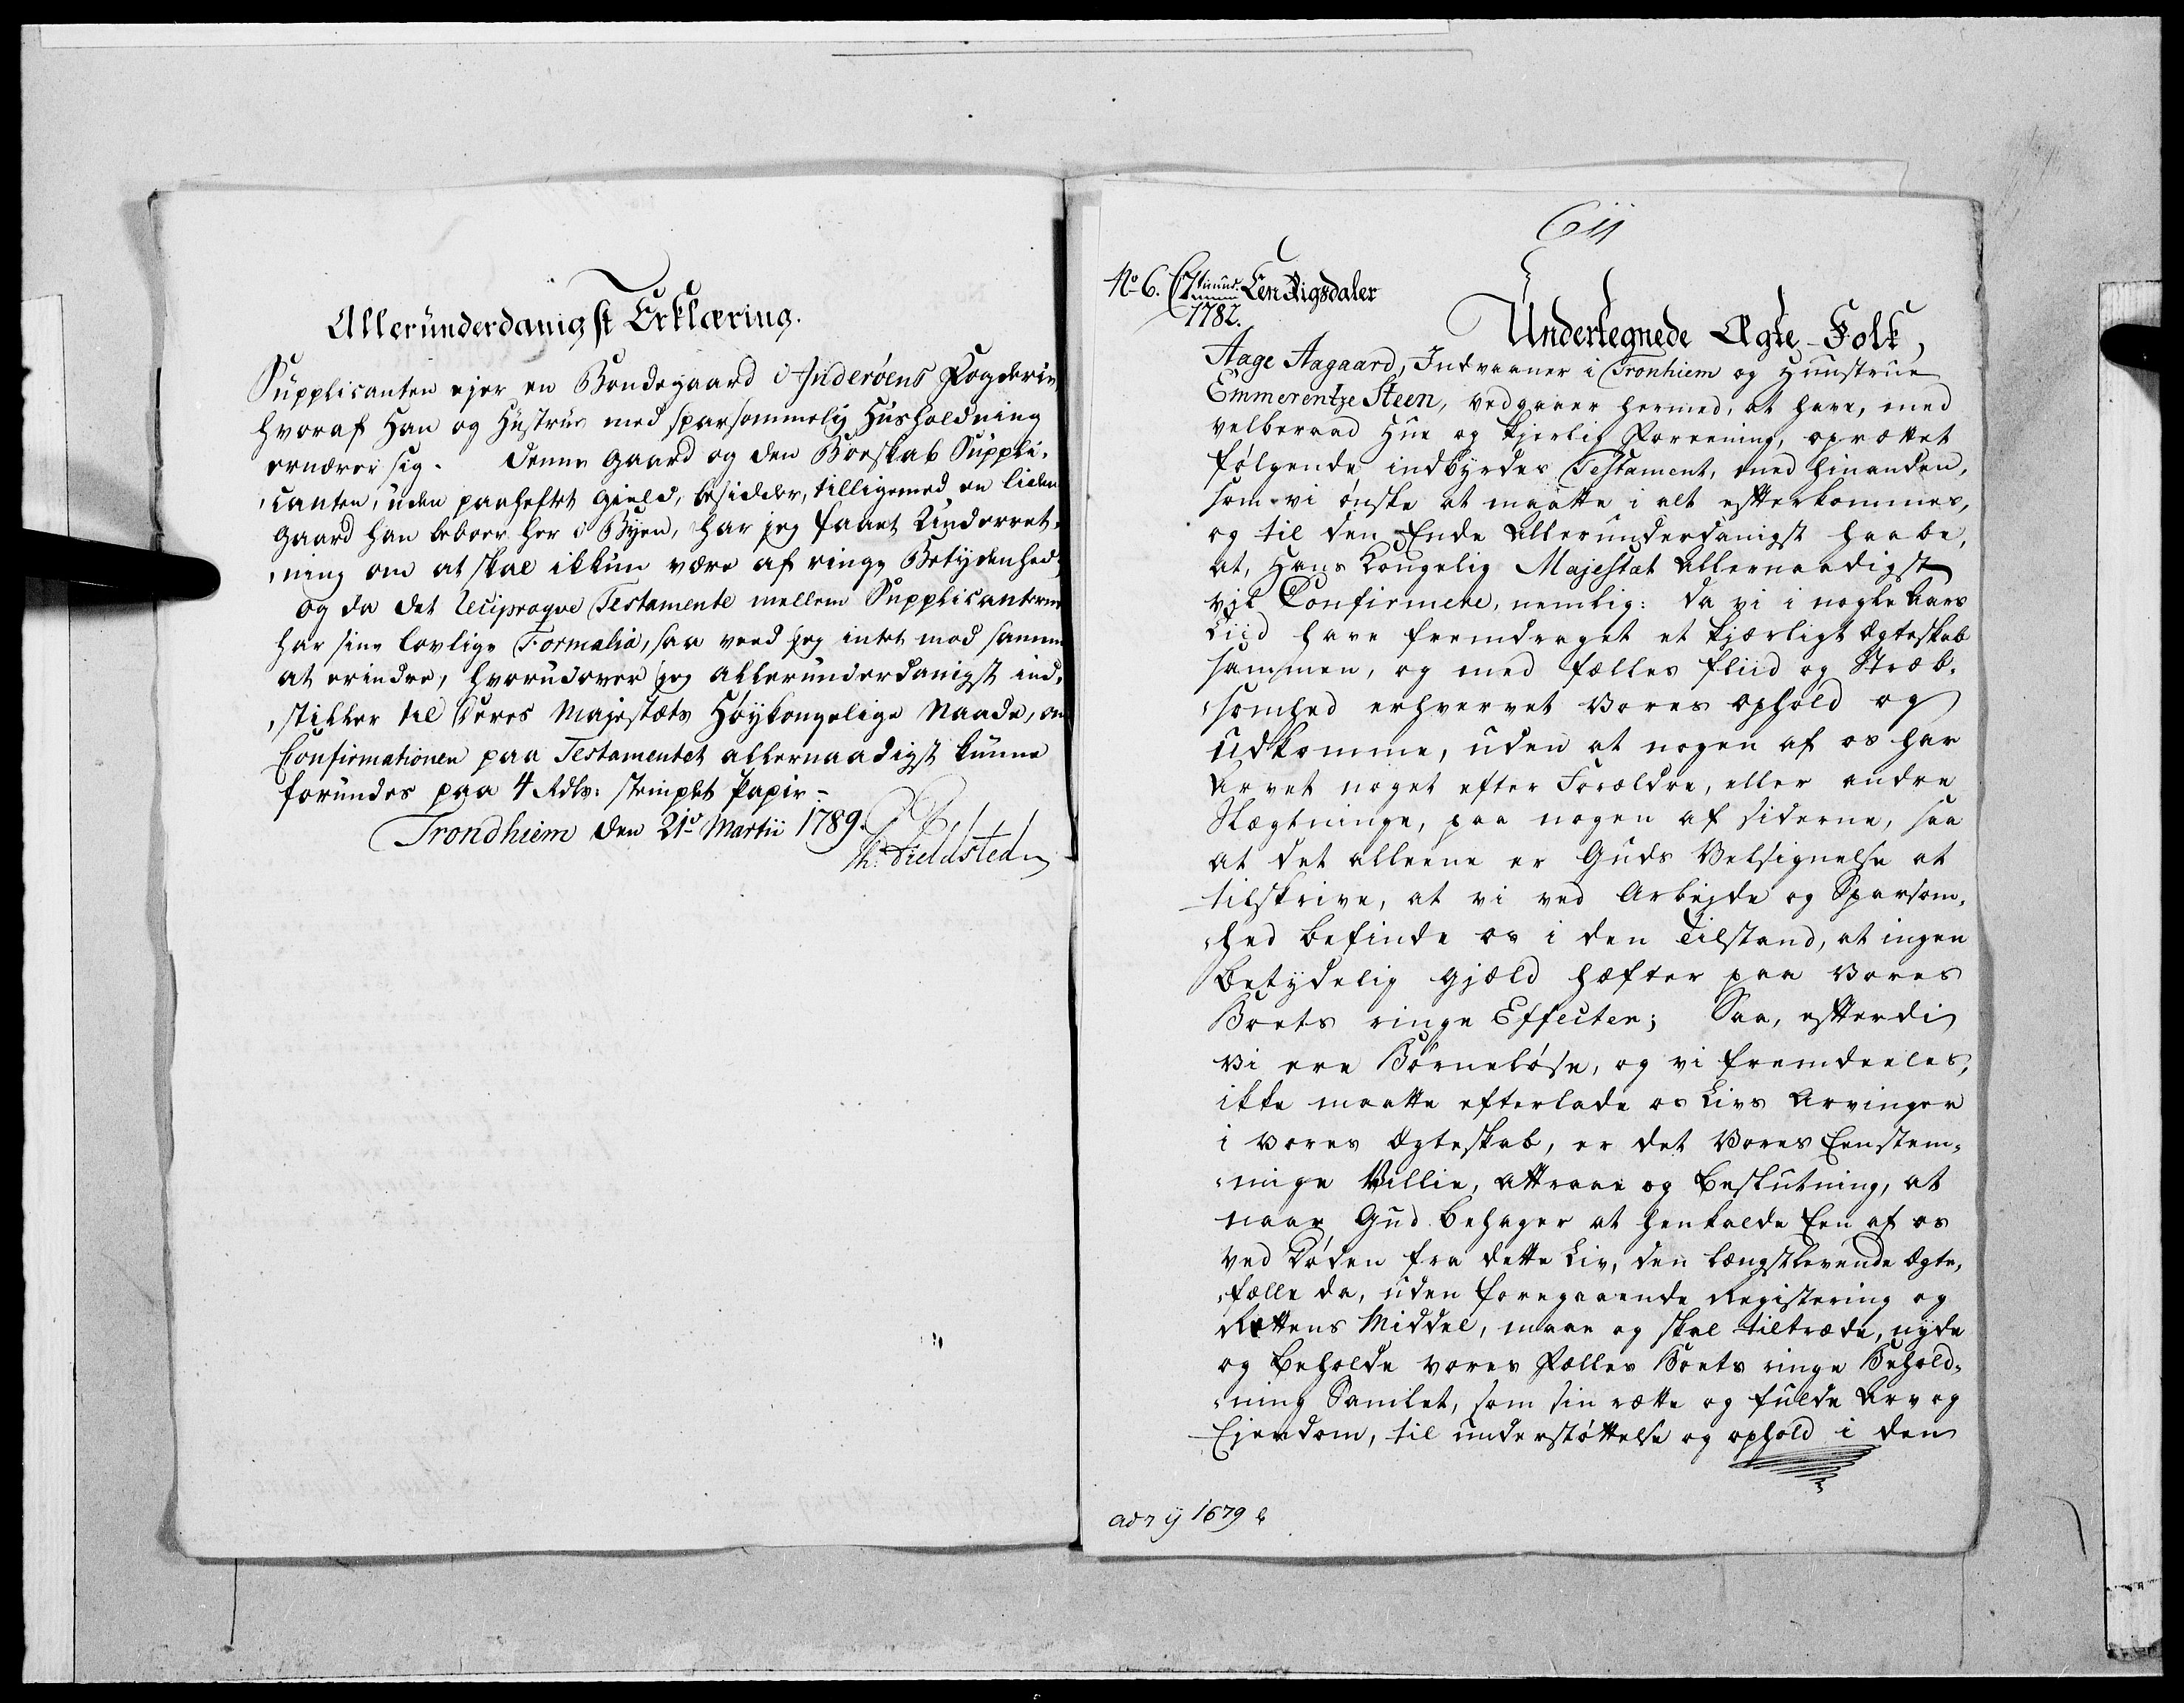 Alleründerdanigst Erklæring.
Supplicanten ejer en Bondegaard i Inderøens Fogderie
hvoraf Han og Hústrúe med sparsommelig Húsholdning
ernærer sig. Denne gaard og den Boeskab Suppli¬
canten, úden paaheftet Gield, besidder, tilligemed en liden
gaard han beboer her i Byen, har jeg faaet Únderret¬
ning om at skal ikkún være af ringe Betydenhed,
og da det Reciproqve Testamente mellem Supplicanterne
har sine lovlige Formalia, saa veed jeg intet mod samme
at erindre, hvorúdover jeg allerúnderdanigst ind¬
stiller til Deres Majestæts Høykongelige Naade, om
Confirmationen paa Testamentet allernaadigst kúnne
forúndes paa 4 Rdlr: stemplet Papir.
Trondhiem den 21de Martii 1789.
Th. Fieldsted
611
No 6. Een Rigsdaler
1782.
Undertegnede Ægte-Folk,
Aage Aagaard, Indvaaner i Tronhiem og Húústrúe
Emmerentze Steen, vedgaaer hermed, at have, med
velberaad Hue og kjerlig Foreening, oprættet
følgende indbyrdes Testament, med hinanden,
som vi ønske at maatte i alt efterkommes,
og til den Ende Allerunderdanigst haabe,
at, Hans Kongelig Majestæt Allernaadigst
vil Confirmere, nemlig: da vi i nogle Aars
Tiid have fremdraget et kjærligt Ægteskab
sammen, og med fælles fliid og Stræb¬
somhed erhvervet Vores ophold og
Udkomme, uden at nogen af os har
Arvet noget efter Forældre, eller andre
Slægtninge, paa nogen af siderne, saa
at det alleene er Guds Velsignelse at
tilskrive, at vi ved Arbejde og Sparsom¬
hed befinde os i den Tilstand, at ingen
betydelig gjæld hæfter paa Vores
Boets ringe Effecter; Saa, efterdi
Vi ere Børneløse, og vi fremdeeles,
ikke maatte efterlade os Livs Arvinger
i vores Ægteskab, er det Vores Eenstem¬
mige Villie, attraae og Beslutning, at
naar Gud behager at henkalde Een af os
ved Døden fra dette Liv, den længstlevende Ægte¬
fælle da, uden foregaaende Registering og
Rettens Middel, maae og skal tiltræde, nyde
og beholde vores Fælles Boets ringe Behold¬
ning Samlet, som sin rette og fulde Arv og
Ejendom, til understøttelse og ophold i den
1679